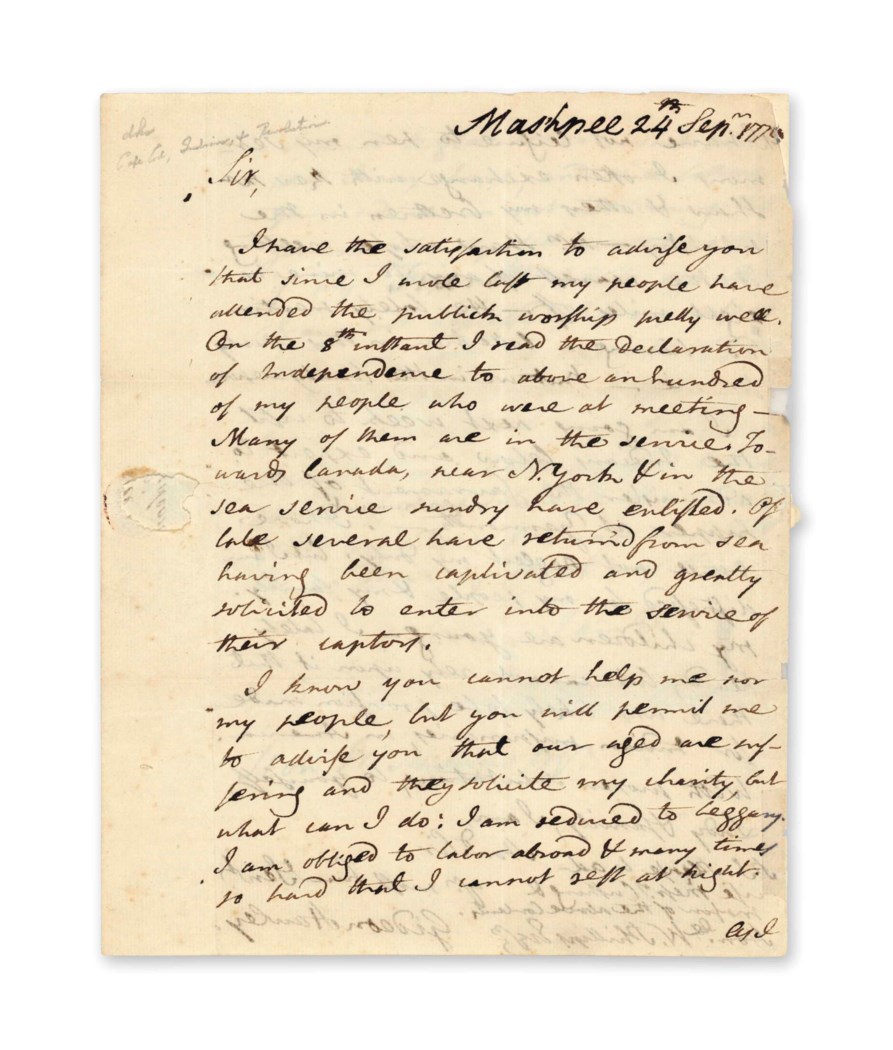 Mashpee 24th Sepr. 1776
Sir,
I have the satisfaction to advise you
that since I wrote last my people have
attended the publick worship pretty well.
On the 8th instant I read the Declaration
of Independence to above an hundred
of my people who were at meeting—
Many of them are in the service. To-
wards Canada, near N. York & in the
sea service sundry have enlisted. Of
late several have returnd from sea
having been captivated and greatly
solicited to enter into the service of
their captors.
I know you cannot help me nor
my people, but you will permit me
to advise you that our aged are suf-
fering and they solicite my charity, but
what can I do: I am reduced to beggary.
I am obliged to labor abroad & many times
so hard that I cannot rest at night.
As I
Gideon Hawley